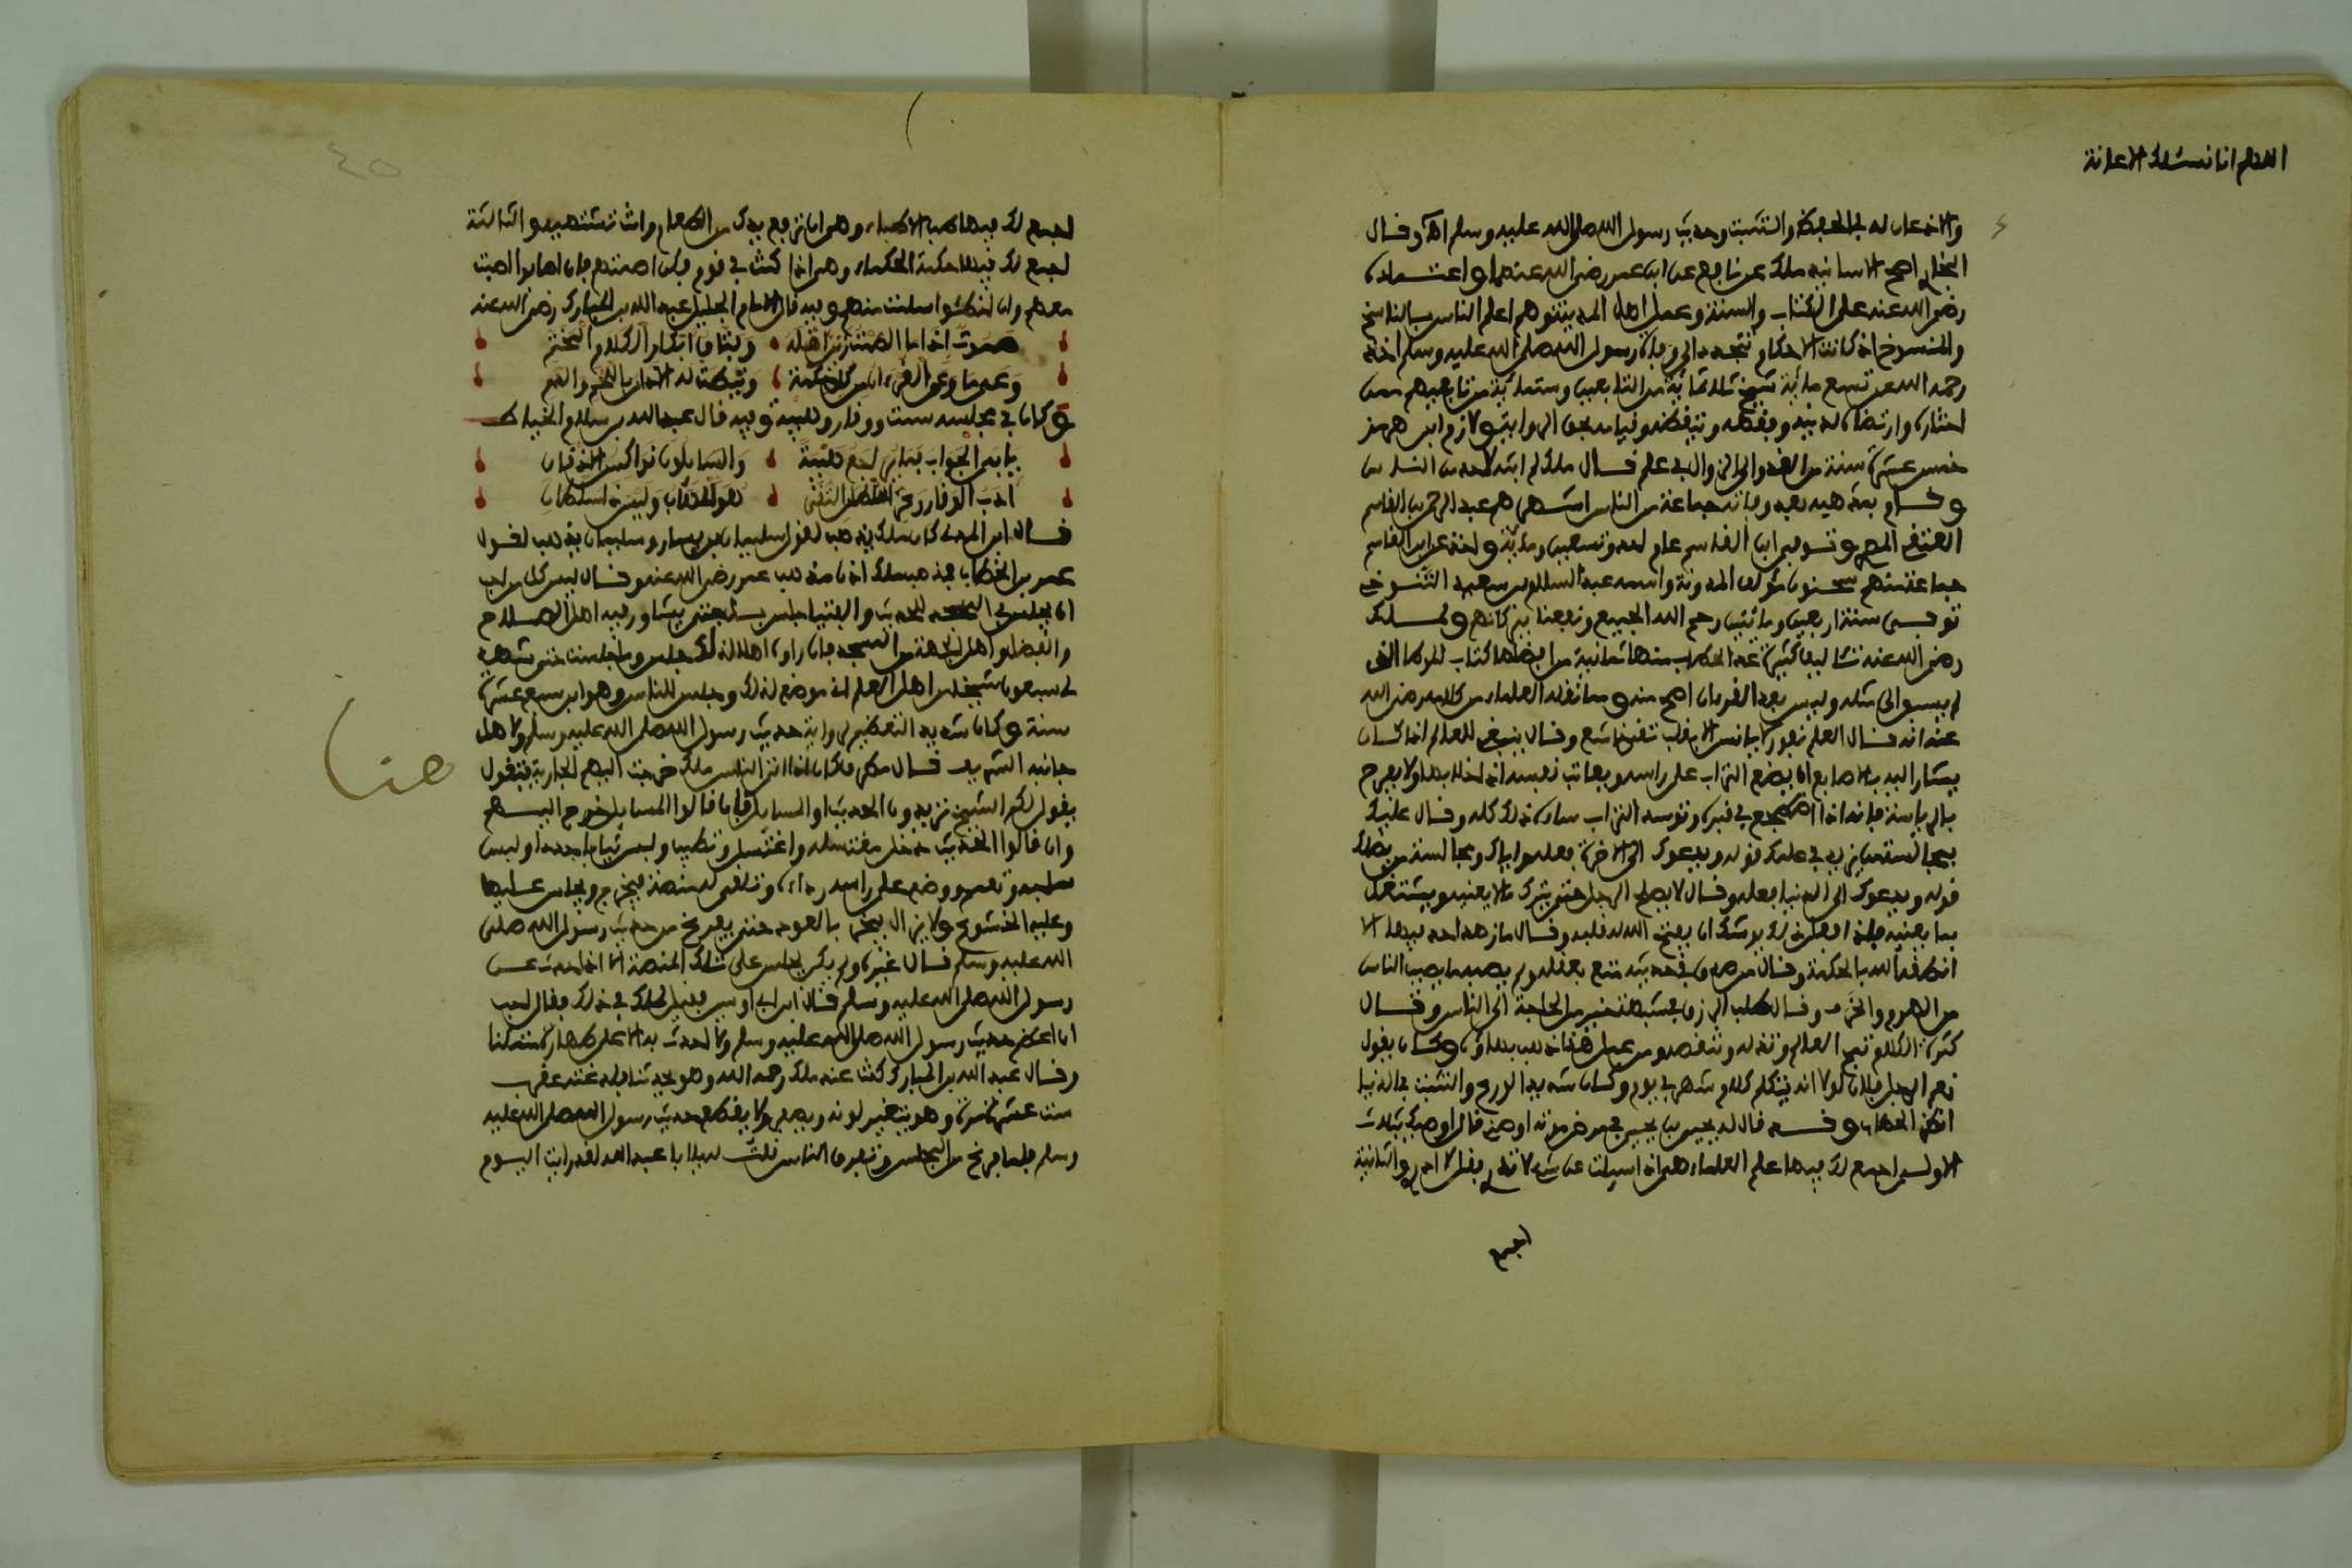 اللهم انا نسئلك الاعانة
والاذعان له في الحفظ والتثبت وحديث رسول الله صلى الله عليه وسلم اه وقال
البخاري اصح الاسانيد ملك عن نافع عن ابن عمر رضي الله عنهما واعتماده
رضي الله عنه على الكتاب والسنة وعمل اهل المدينة وهم اعلم الناس بالناسخ
والمنسوخ اذ كانت الاحكام تتجدد الى وفاة رسول الله صلى الله عليه وسلم اخذ
رحمه الله عن تسع مائة شيخ ثلاثمائة من التابعين وستمائة من تابعيهم ممن
اختاره وارتضاه لدينه وفقهه وتيقظه وقيامه بحق الرواية ولازم ابن هرمز
خمس عشرة سنة من الغدو الى الزوال في علم قال ملك لم ابثه لاحد من الناس
وقام بمذهبه بعده وفاته جماعة من الناس اشهرهم عبد الرحمن بن القاسم
العتقي المصري وتوفي ابن القاسم عام احد وتسعين ومائة واخذ عن ابن القاسم
جماعة منهم سحنون مؤلف المدونة واسمه عبد السلام بن سعيد التنوخي
توفي سنة اربعين ومائتين رحم الله الجميع ونفعنا ببركاتهم ولملك
رضي الله عنه تآليف كثيرة عد الحطاب منها ثمانية من افضلها كتاب الموطا الذي
لم يسبق الى مثله وليس بعد القرءان اصح منه ومما نقله العلماء من كلامه رضي الله
عنه انه قال العلم نفور لا يانس الا بقلب تقي خاشع وقال ينبغي للعالم اذا كان
يشار اليه بالاصابع ان يضع التراب على راسه ويعاتب نفسه اذا خلا بها ولا يفرح
بالرياسة فانه اذا اضطجع في قبره وتوسد التراب ساءه ذلك كله وقال عليك
بمجالسة من يزيد في علمك قوله ويدعوك الى الاخرة فعله واياك ومجالسة من يضلك
قوله ويدعوك الى الدنيا فعله وقال لا يصلح الرجل حتى يترك ما لا يعنيه ويشتغل
بما يعنيه فاذا فعل ذلك يوشك ان يفتح الله له قلبه وقال ما زهد احد فيها الا
انطقه الله بالحكمة وقال من صدق في حديثه متع بعقله ولم يصبه ما يصيب الناس
من الهرم والخرف وقال طلب الرزق في شبهة خير من الحاجة الى الناس وقال
كثرة الكلام تمج العالم وتذله وتنقصه ومن عمل هذا ذهب بهاؤه وكان يقول
نعم الرجل فلان لولا انه يتكلم كلام شهر في يوم وكان شديد الورع والتثبت في الدنيا
انظر الحطاب وقد قال له يحيى بن يحيى في مرض موته اوصني قال اوصيك بثلاث
الاولى اجمع لك فيها علم العلماء هي اذا سيلت عن شيء لا تدري فقل لا ادري والثانية
اجمع
اجمع لك فيها طب الاطباء وهي ان ترفع يدك من الطعام وانت تشتهيه والثالثة
اجمع لك فيها حكمة الحكماء وهي اذا كنت في قوم فكن اصمتهم فان اصابوا اصبت
معهم وان اخطئوا سلمت منهم وفيه قال الامام الجليل عبد الله بن المبارك رضي الله عنه
صموت اذا ما الصمت زين اهله وفتاق ابكار الكلام المختم
وعى ما وعى القرءان من كل حكمة ونيطت له الاداب باللحم والدم
وكان في مجلسه سمت ووقار وهيبة وفيه قال عبد الله بن سالم الخياط
يابى الجواب فما يراجع هيبة والسايلون نواكس الاذقان
ادب الوقار وعز سلطان التقى فهو المهاب وليس ذا سلطان
قال ابن المديني كان ملك يذهب لقول سليمان بن يسار وسليمان يذهب لقول
عمر بن الخطاب فمذهب ملك اذا مذهب عمر رضي الله عنه وقال ليس كل من احب
ان يجلس في المسجد للحديث والفتيا جلس بل حتى يشاور فيه اهل الصلاح
والفضل واهل الجهة من المسجد فان راوه اهلا لذلك جلس وما جلست حتى شهد
لي سبعون شيخا من اهل العلم اني موضع لذلك وجلس للناس وهو ابن سبع عشرة
سنة وكان شديد التعظيم لرواية حديث رسول الله صلى الله عليه وسلم ولاهل
جانبه الشريف قال مطرف كان اذا اتى الناس ملك خرجت اليهم الجارية فتقول
يقول لكم الشيخ تريدون الحديث او المسايل فان قالوا المسايل خرج اليهم
وان قالوا الحديث دخل مغتسله واغتسل وتطيب ولبس ثيابا جددا ولبس
ساجه وتعمم ووضع على راسه رداءه وتلقى له منصة فيخرج ويجلس عليها
وعليه الخشوع ولا يزال يبخر بالعود حتى يفرغ من حديث رسول الله صلى
الله عليه وسلم قال غيره ولم يكن يجلس على تلك المنصة الا اذا حدث عن
رسول الله صلى الله عليه وسلم قال ابن ابي اويس فقيل لملك في ذلك فقال احب
ان اعظم حديث رسول الله صلى الله عليه وسلم ولا احدث به الا على طهارة متمكنا
وقال عبد الله بن المبارك كنت عند ملك رحمه الله وهو يحدثنا فلدغته عقرب
ست عشرة مرة وهو يتغير لونه ويصفر ولا يقطع حديث رسول الله صلى الله عليه
وسلم فلما فرغ من المجلس وتفرق الناس قلت له يا ابا عبد الله لقد رايت اليوم
هنا
٤٥